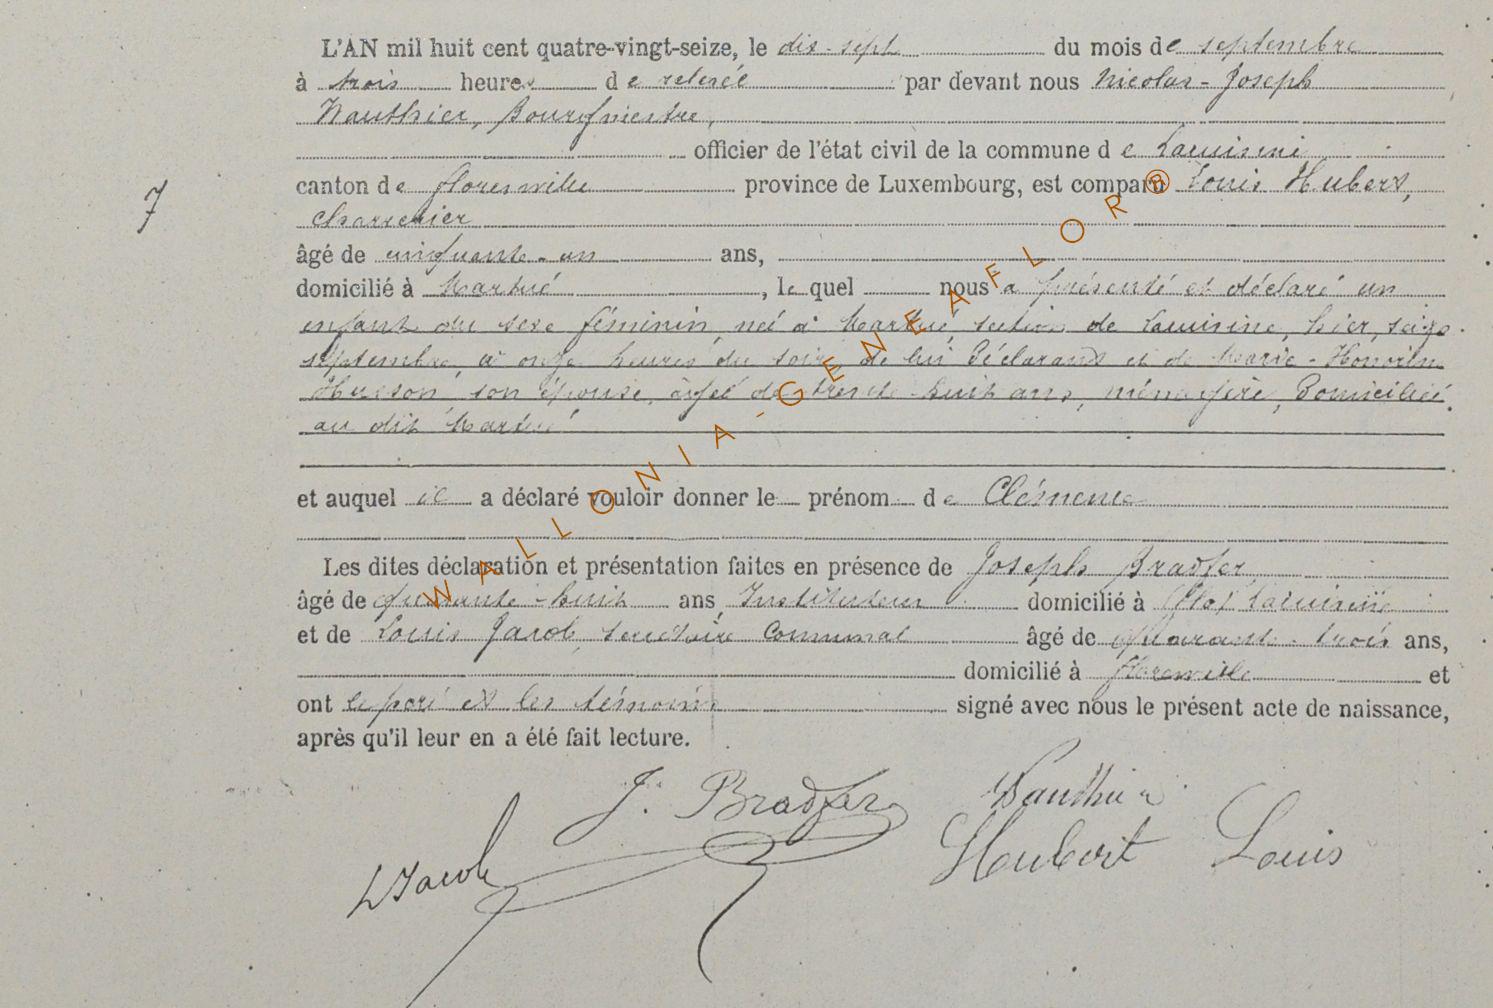 L'AN mil huit cent quatre-vingt-seize, le dix-sept du mois de septembre
à trois heures de relevée par devant nous Nicolas-Joseph
Wauthier, Bourgmestre,
officier de l'état civil de la commune de Lacuisine
7 canton de florenville province de Luxembourg, est comparu Louis Hubert,
charretier
âgé de cinquante-un ans,
domicilié à Martué, lequel nous a présenté et déclaré un
enfant du sexe féminin, née à Martué, section de Lacuisine, hier, seize
septembre, à onze heures du soir, de lui Déclarant et de Marie-Honorine
Husson, son épouse, âgée de trente-huit ans, ménagère, Domiciliée
au dit Martué
et auquel il a déclaré vouloir donner le prénom de Clémence
Les dites déclaration et présentation faites en présence de Joseph Bradfer
âgé de quarante-huit ans, Instituteur domicilié à Lacuisine
et de Louis Jacob, secrétaire Communal âgé de quarante-trois ans,
domicilié à florenville et
ont le père et les témoins signé avec nous le présent acte de naissance,
après qu'il leur en a été fait lecture.
J. Bradfer Wauthier
LJacob Hubert Louis
WALLONIA-GENEAFLOR®